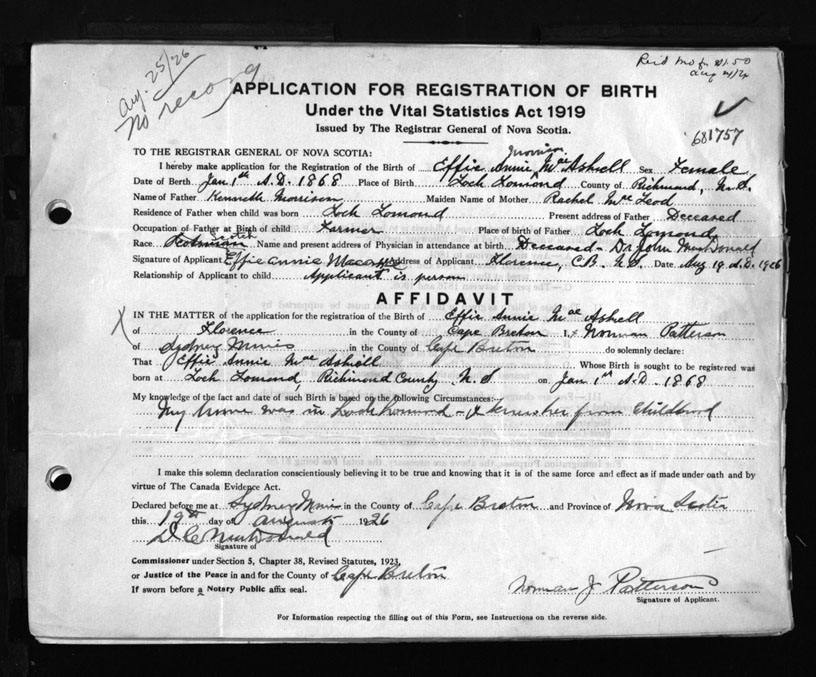 Aug. 25/26
No record
Rec'd M.O. for $1.50
Aug 21/26
681757
APPLICATION FOR REGISTRATION OF BIRTH
Under the Vital Statistics Act 1919
Issued by The Registrar General of Nova Scotia.
TO THE REGISTRAR GENERAL OF NOVA SCOTIA:
Morrison
I hereby make application for the Registration of the Birth of Effie Annie Mac Askell Sex Female
Date of Birth Jan 1st A.D. 1868 Place of Birth Loch Lomond County of Richmond, N.S.
Name of Father Kenneth Morrison Maiden Name of Mother Rachel McLeod
Residence of Father when child was born Loch Lomond Present address of Father Deceased
Occupation of Father at Birth of child Farmer Place of birth of Father Loch Lomond
Scotch
Race. Scotsman Name and present address of Physician in attendance at birth Deceased - Dr John MacDonald
Signature of Applicant Effie Annie Address of Applicant Florence, C.B. N.S. Date Aug 19 A.D. 1926
Relationship of Applicant to child Applicant is person
AFFIDAVIT
X
IN THE MATTER of the application of the registration of the Birth of Effie Annie Mac Askell
of Florence in the County of Cape Breton I, Norman Patterson
of Sydney Mines in the County of Cape Breton do solemnly declare:
That Effie Annie Mac Askell Whose Birth is sought to be registered was
born at Loch Lomond, Richmond County N.S on Jan 1st A.D. 1868
My knowledge of the fact and date of such Birth is based on the following Circumstances:-
My home was in Loch Lomond - & knew her from Childhood
I make this solemn declaration conscientiously believing it to be true and knowing that it is of the same force and effect as if made under oath and by
virtue of The Canada Evidence Act.
Declared before me at Sydney Mines in the County of Cape Breton and Province of Nova Scotia
this 19th day of August 1926
D C MacDonald
Signature of
Commissioner under Section 5, Chapter 38, Revised Statutes, 1923,
or Justice of the Peace in and for the County of Cape Breton
If sworn before a Notary Public affix seal.
Norman J Patterson
Signature of Applicant.
For Information respecting the filling out of this Form, see Instructions on the reverse side.